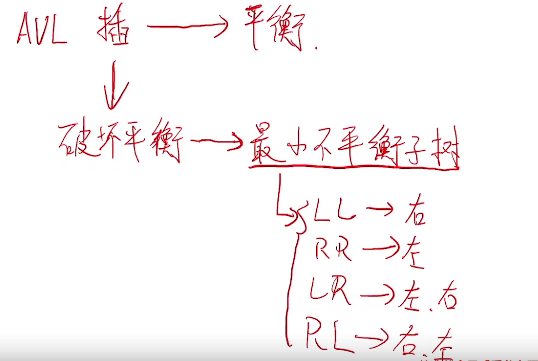 AVL 插 → 平衡.
↓
破坏平衡 → 最小不平衡子树
LL → 右
RR → 左
LR → 左、右
RL → 右、左